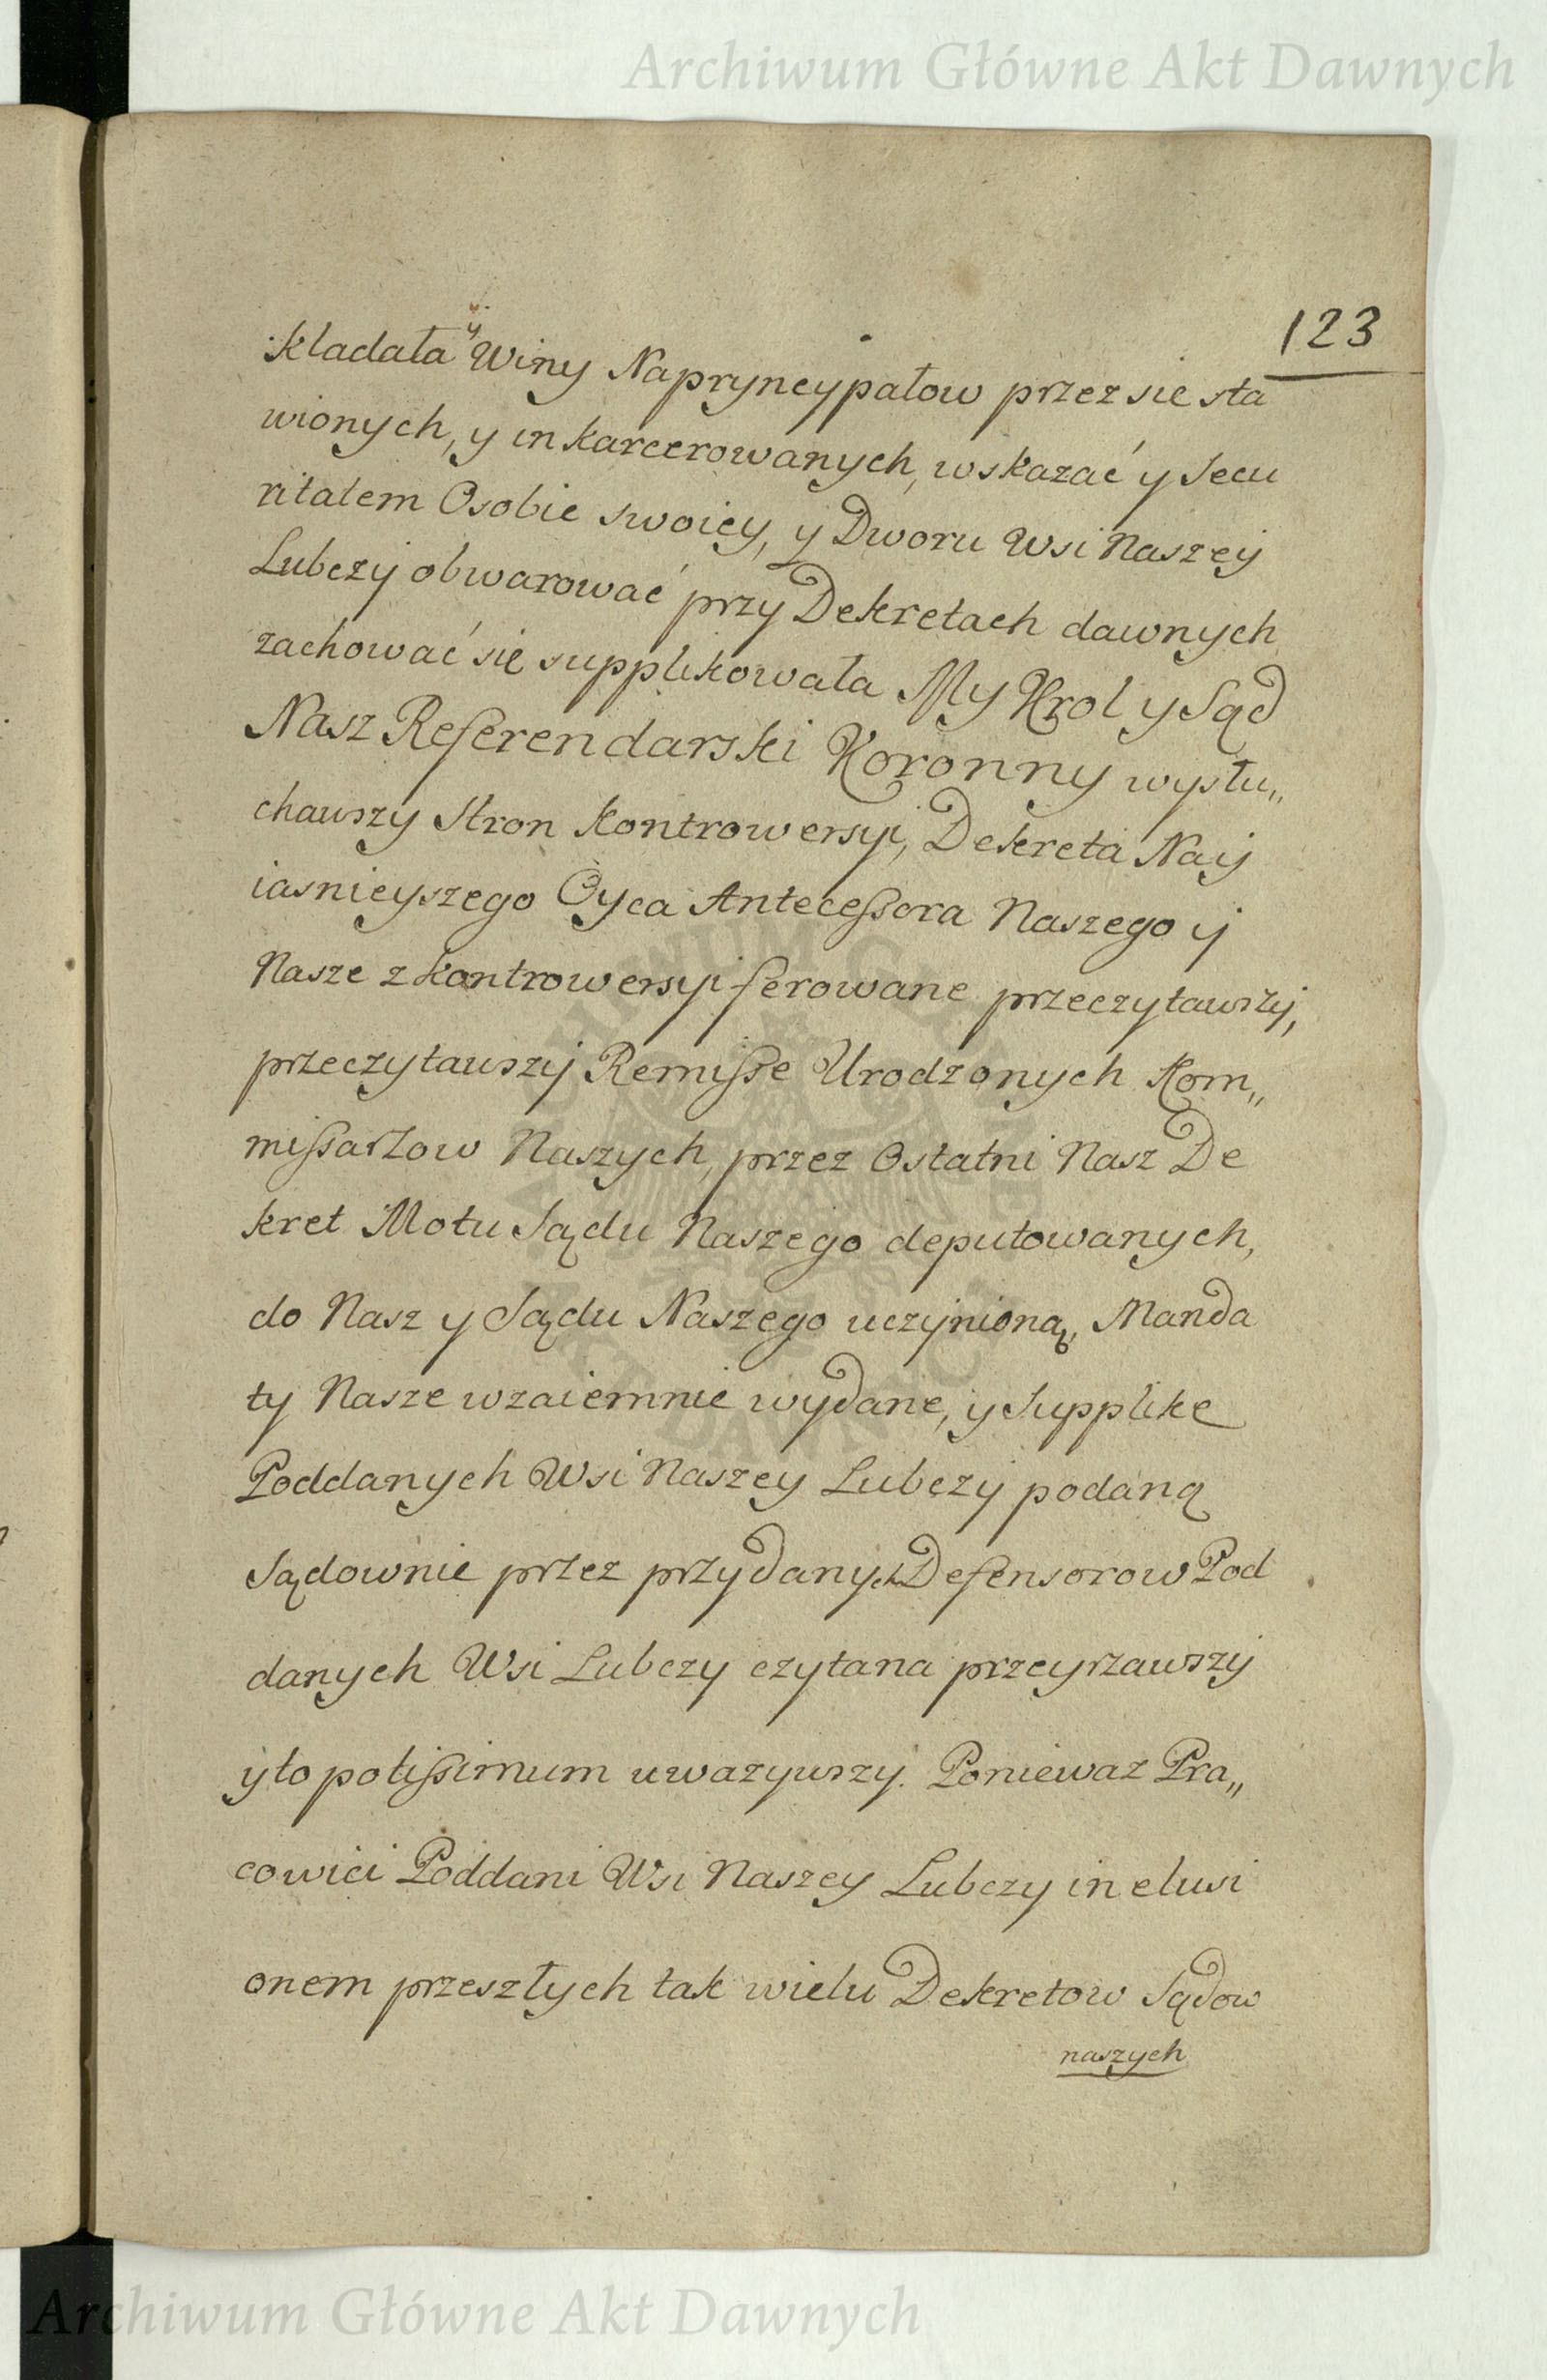 Archiwum Główne Akt Dawnych
123
kladała y Winy Napryncypałow przez sie sta
wionych, y inkarcerowanych, wskazać y Secu
ritatem Osobie swoiey, y Dworu Wsi Naszey
Lubczy obwarować przy Dekretach dawnych
zachować się supplikowała My Krol y Sąd
Nasz Referendarski Koronny wysłu„
chawszy Stron Kontrowersyi, Dekreta Nay
iasnieyszego Oyca Antecessora Naszego y
Nasze z kontrowersyi ferowane przeczytawszy,
przeczytawszy Remisse Urodzonych Kom„
missarzow Naszych, przez Ostatni Nasz De
kret Motu Sądu Naszego deputowanych,
do Nasz y Sądu Naszego uczynioną, Manda
ty Nasze wzaiemnie wydane, y Supplike
Poddanych Wsi Naszey Lubczy podaną
Sądownie przez przydanych Defensorow Pod
danych Wsi Lubczy czytana przeyrzawszy
y to potissimum uwazywszy. Poniewaz Pra„
cowici Poddani Wsi Naszey Lubczy in elusi
onem przeszłych tak wielu Dekretow Sądow
naszych
Archiwum Główne Akt Dawnych